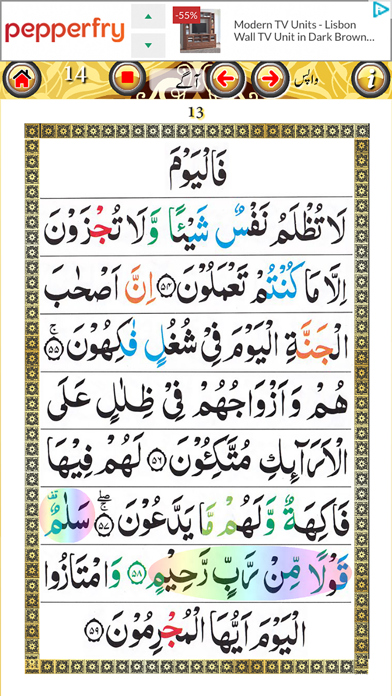 pepperfry
-55%
Modern TV Units - Lisbon
Wall TV Unit in Dark Brown...
14
آگے
واپس
i
13
فَالْيَوْمَ
لَا تُظْلَمُ نَفْسٌ شَيْئًا وَّلَا تُجْزَوْنَ
اِلَّا مَا كُنْتُمْ تَعْمَلُوْنَ ۝۵۴ اِنَّ اَصْحٰبَ
الْجَنَّةِ الْيَوْمَ فِيْ شُغُلٍ فٰكِهُوْنَ ۝۵۵ۚ
هُمْ وَاَزْوَاجُهُمْ فِيْ ظِلٰلٍ عَلَى
الْاَرَآئِكِ مُتَّكِئُوْنَ ۝۵۶ لَهُمْ فِيْهَا
فَاكِهَةٌ وَّلَهُمْ مَّا يَدَّعُوْنَ ۝۵۷ۖ سَلٰمٌ ۣ
قَوْلًا مِّنْ رَّبٍّ رَّحِيْمٍ ۝۵۸ وَامْتَازُوا
الْيَوْمَ اَيُّهَا الْمُجْرِمُوْنَ ۝۵۹